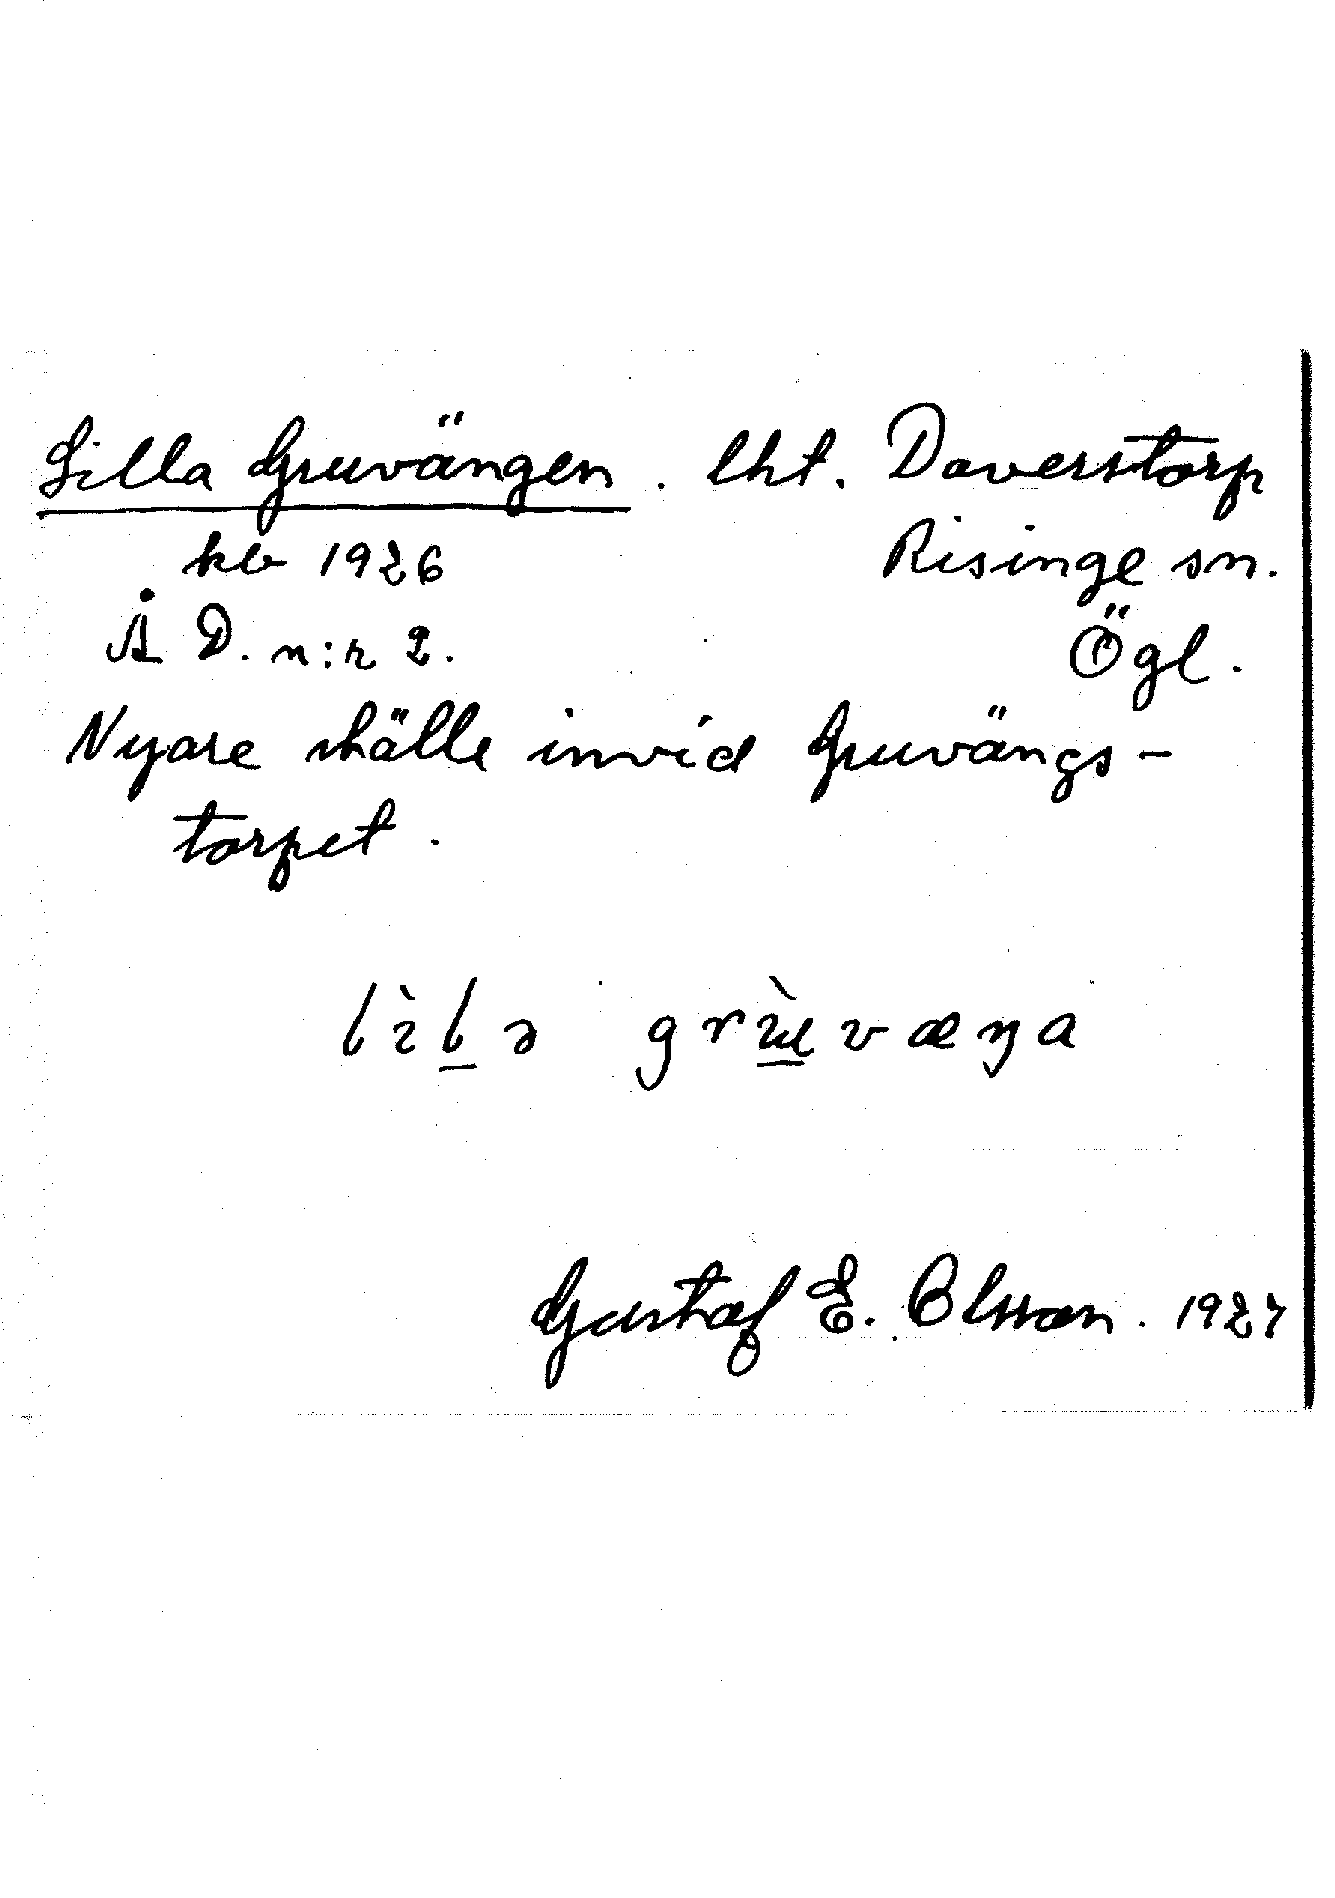 Lilla Gruvängen. lht. Daverstorp
kb 1926 Risinge sn.
Å D. n:r 2. Ögl.
Nyare ställe invid Gruvängs-
torpet.
lìlə grùvæŋa
Gustaf E. Olsson. 1927